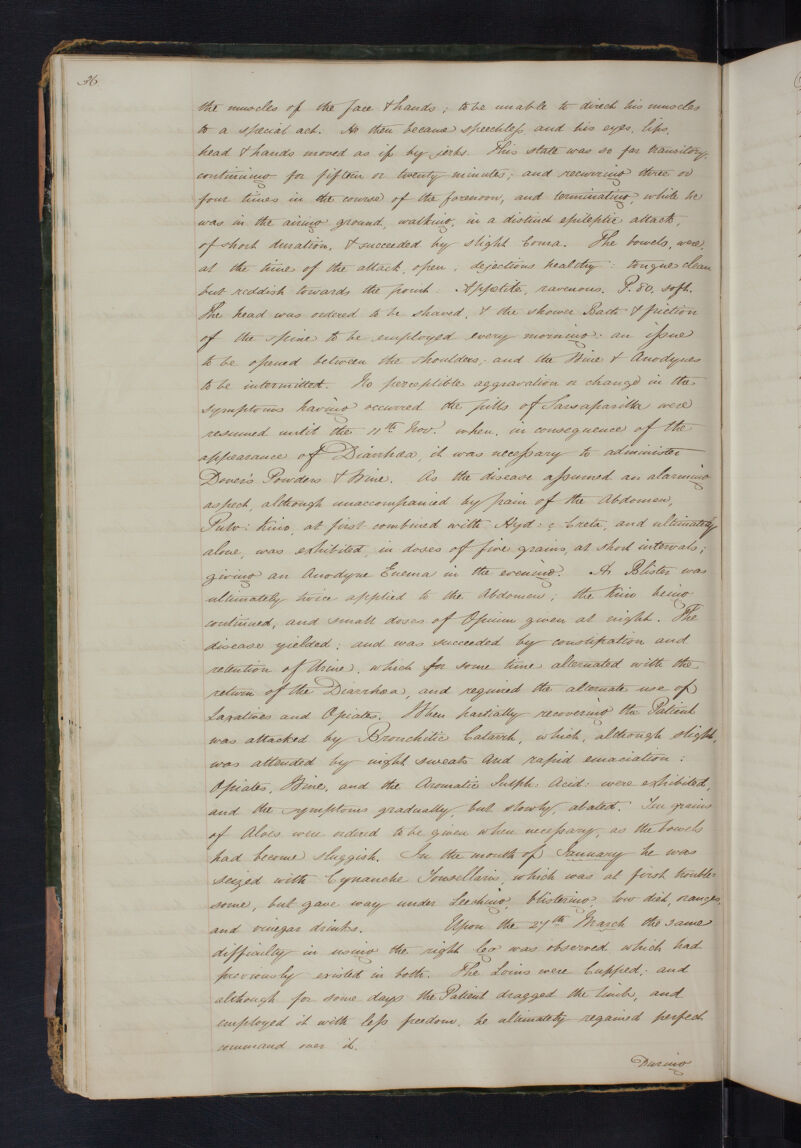 36
the muscles of the face & hands; to be unable to direct his muscles
to a special act. He then became speechless and his eyes, lips,
head & hands moved as if by jerks. This state was so far transitory,
continuing for fifteen or twenty minutes; and recurring three or
four times in the course of the forenoon, and terminating, while he
was in the airing ground, walking, in a distinct epileptic attack,
of short duration, & succeeded by slight Coma. The bowels, were,
at the time of the attack, open; dejections healthy: tongue clean
but reddish towards the point. Appetite, ravenous. P. 80, soft.
The head was ordered to be shaved, & the shower Bath & friction
of the spine to be employed every morning: an issue
to be opened between the shoulders; and the Wine & Anodynes
to be intermitted. No perceptible aggravation or change in the
symptoms having occurred the pills of Sarsaparilla were
resumed until the 11th Nov. when, in consequence of the
appearance of Diarrhœa, it was necessary to administer
Dover's Powders & Wine. As the disease assumed an alarming
aspect, although unaccompanied by pain of the Abdomen,
Pulv: Kino, at first combined with Hyd: c Creta, and ultimately
alone, was exhibited, in doses of five grains, at short intervals;
giving an Anodyne Enema in the evening. A Blister was
ultimately twice applied to the Abdomen; the Kino being
continued, and small doses of Opium given at night. The
disease yielded; and was succeeded by constipation and
retention of Urine, which for some time alternated with the
return of the Diarrhœa, and required the alternate use of
Laxatives and Opiates. When partially recovering the Patient
was attacked by Bronchitic Catarrh, which, although slight,
was attended by night sweats and rapid emaciation:
Opiates, Wine, and the Aromatic Sulph: Acid: were exhibited,
and the symptoms gradually, but slowly, abated. Ten grains
of Aloes were ordered to be given when necessary, as the bowels
had become sluggish. In the month of January he was
seized with Cynanche Tonsellaris, which was at first trouble-
some, but gave way under Leeching, blistering, low diet, oranges,
and vinegar drinks. Upon the 27th March the same
difficulty in using the right leg was observed which had
previously existed in both. The Loins were Cupped; and
although for some days the Patient dragged the limb, and
employed it with less freedom, he ultimately regained perfect
command over it.
During